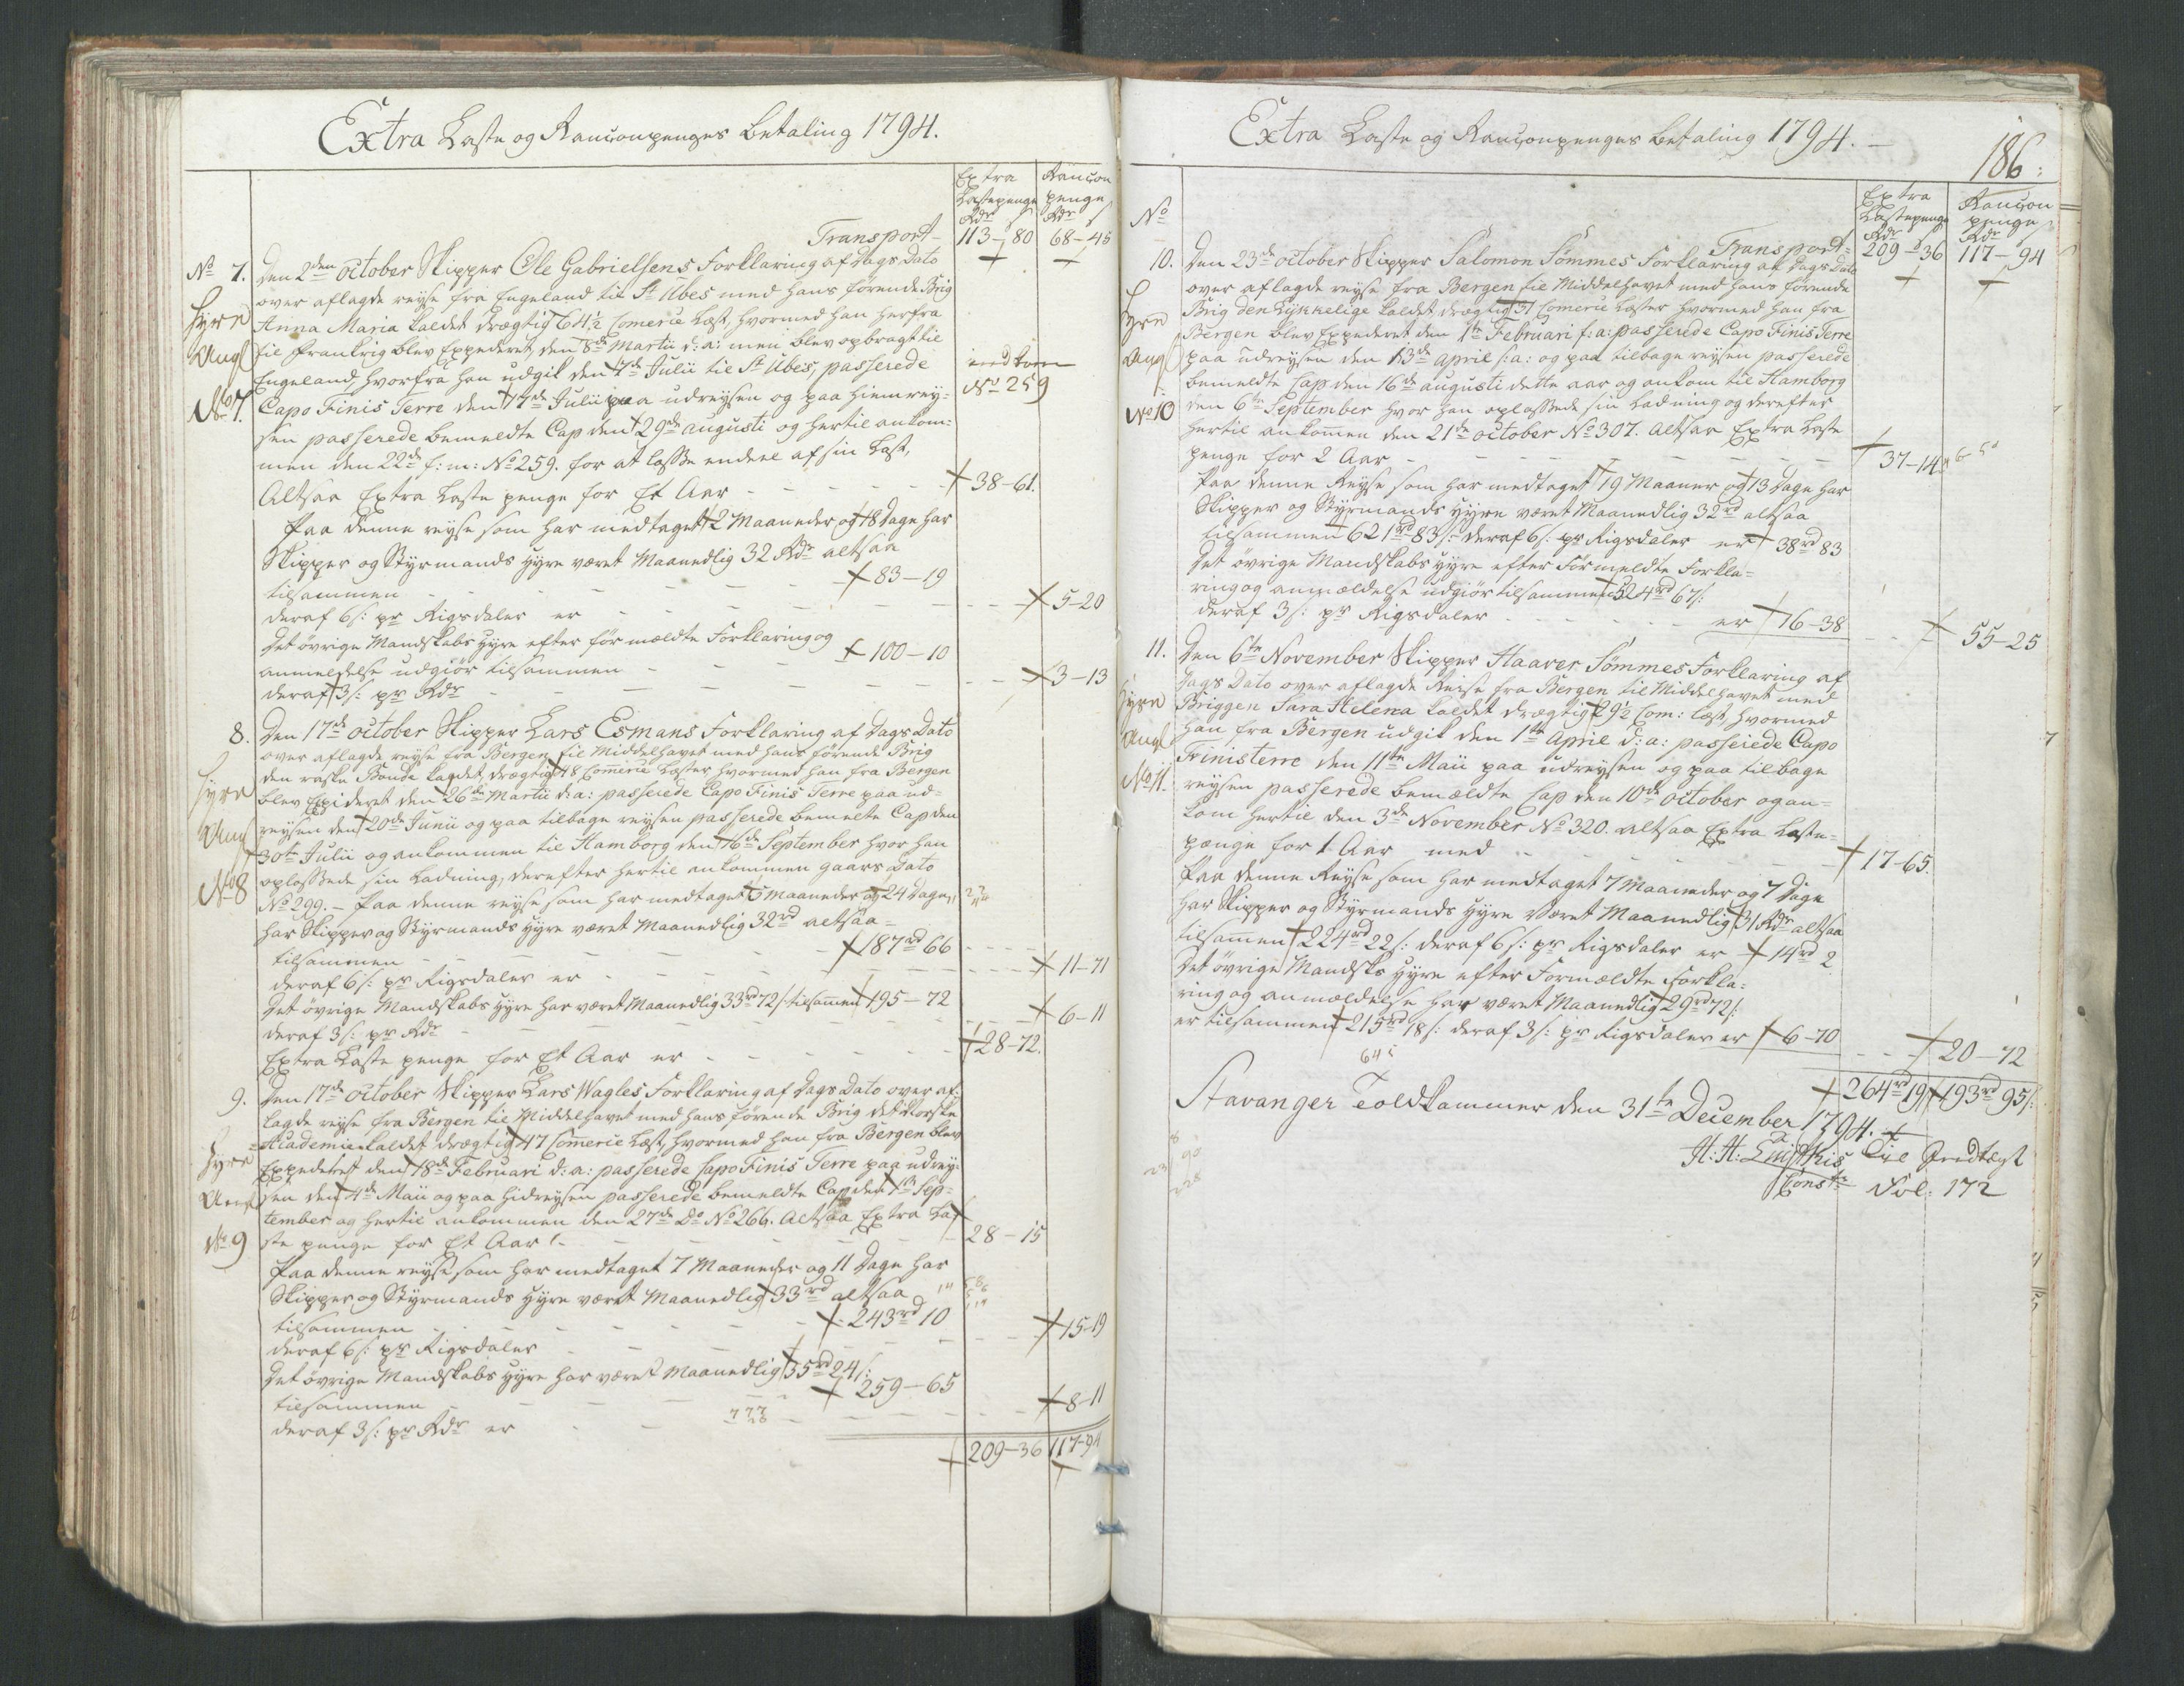 Extra Laste og Rançonpenges betaling 1794.
Extra Lastepenge Rdr s
Rançon penge Rdr s
Transport - 113 - 80 68 - 45
No 7. Den 2den October Skipper Ole Gabrielsens Forklaring af Dags Dato
over aflagde reyse fra Engeland til St Ubes med hans förende Brig
Anna Maria kaldet drægtig 64½ Comerce Læst, hvormed han herfra
til Frankrig blev Expederet den 8de Martii d: a: men blev opbragt til
Engeland, hvorfra han udgik den 7de Julii til St Ubes, passerede
Capo Finis Terre den 17de Julii paa udreysen og paa hiemrey-
sen passerede bemeldte Cap den 29de augusti og hertil ankom-
men den 22de f: m: No 259. for at losse endeel af sin Last,
Altsaa Extra Laste penge for Et Aar - - - 38 - 61.
Paa denne reyse som har medtaget 2 Maaneder og 18 Dage har
Skipper og Styrmands hyre været Maanedlig 32 Rdr altsaa
tilsammen - - - 83 - 19
deraf 6 s: pr Rigsdaler er - - - 5 - 20
Det övrige Mandskabs hyre efter för mældte Forklaring og
anmeldelse udgiör tilsammen - - - 100 - 10
deraf 3 s: pr Rdr - - - 3 - 13
Hyre
Angl
No 7.
No 259
8. Den 17de October Skipper Lars Esmans Forklaring af Dags Dato
over aflagde reyse fra Bergen til Middelhavet med hans förende Brig
den raske Bonde kaldet, drægtig 48 Comerce Læster hvormed han fra Bergen
blev Expederet den 26de Martii d: a: passerede Capo Finis Terre paa ud-
reysen den 20de Junii og paa tilbage reysen passerede bemelte Cap den
30te Julii og ankommen til Hamborg den 16de September hvor han
oplossede sin Ladning, derefter hertil ankommen gaars Dato
No 299. - Paa denne reyse som har medtaget 5 Maaneder og 24 Dage,
har Skipper og Styrmands hyre været Maanedlig 32rd altsaa-
tilsammen - - - 187rd 66
deraf 6 s: pr Rigsdaler er - - - 11 - 71
Det övrige Mandskabs hyre har været Maanedlig 33rd 72 s tilsamen 195 - 72
deraf 3 s: pr Rdr - - - 6 - 11
Extra Laste penge for Et Aar er - - - 28 - 72.
Hyre
Angl
No 8
9. Den 17de October Skipper Lars Wagles Forklaring af Dags Dato over af-
lagde reyse fra Bergen til Middelhavet med hans förende Brig det Norske
Academie kaldet drægtig 47 Comerce Læst, hvormed han fra Bergen blev
Expederet den 18de Februari d: a: passerede Capo Finis Terre paa udrey-
sen den 4de Maii og paa hidreysen passerede bemeldte Cap den 1te Sep-
tember og hertil ankommen den 27de Do No 266. Altsaa Extra La-
ste penge for Et Aar - - - 28 - 15
Paa denne reyse som har medtaget 7 Maaneder og 11 Dage har
Skipper og Styrmands hyre været Maanedlig 33rd altsaa
tilsammen - - - 243rd 10
deraf 6 s: pr Rigsdaler - - - 15 - 19
Det övrige Mandskabs hyre har været Maanedlig 35rd 24 s:
tilsammen - - - 259 - 65
deraf 3 s: pr Rdr er - - - 8 - 11
209 - 36 117 - 94
Hyre
Angl
No 9
Extra Laste og Rançonpenges betaling 1794. -
186:
No
Extra Lastepenge Rdr s
Rançon penge Rdr s
Transport - 209 - 36 117 - 94
10. Den 23de October Skipper Salomon Sömmes Forklaring af Dags Dato
over aflagde reyse fra Bergen til Middelhavet med hans förende
Brig den Lykkelige kaldet drægtig 31 Comerce Læster hvormed han fra
Bergen blev Expederet den 1te Februari f: a: passerede Capo Finis Terre
paa udreysen den 13de April f: a: og paa tilbage reysen passerede
bemeldte Cap den 16de augusti dette aar og ankom til Hamborg
den 6te September hvor han oplossede sin Ladning og derefter
hertil ankommen den 21de October No 307. Altsaa Extra Laste
penge for 2 Aar - - - 37 - 14
Paa denne Reyse som har medtaget 19 Maaner og 13 Dage har
Skipper og Styrmands hyre været Maanedlig 32rd altsaa
tilsammen 621rd 83 s: deraf 6 s: pr Rigsdaler er 38rd 83
Det övrige Mandskabs hyre efter Förmeldte Forkla-
ring og anmældelse udgiör tilsammen 524rd 67 s:
deraf 3 s: pr Rigsdaler - - - er 16 - 38 - - 55 - 25
Hyre
Angl
No 10
11. Den 6te November Skipper Haaver Sömmes Forklaring af
Dags Dato over aflagde Reise fra Bergen til Middelhavet med
Briggen Sara Helena kaldet drægtig 29½ Com: læst, hvormed
han fra Bergen udgik den 1te April d: a: passerede Capo
Finisterre den 11te Maii paa udreysen og paa tilbage
reysen passerede bemældte Cap den 10de October og an-
kom hertil den 3de November No 320. altsaa Extra Laste-
penge for 1 Aar med - - - 17 - 65.
Paa denne Reyse som har medtaget 7 Maaneder og 7 Dage
har Skipper og Styrmands hyre været Maanedlig 31 Rdr altsaa
tilsamen 224rd 22 s: deraf 6 s: pr Rigsdaler er 14rd 2
Det övrige Mandsks hyre efter Formældte Forkla-
ring og anmældelse har været Maanedlig 29rd 72 s:
er tilsammen 215rd 18 s: deraf 3 s: pr Rigsdaler er 6 - 70 - - 20 - 72
264rd 19 193rd 95 s:
Hyre
Angl
No 11.
Stavanger Toldkammer den 31te December 1794.
Fol: 172